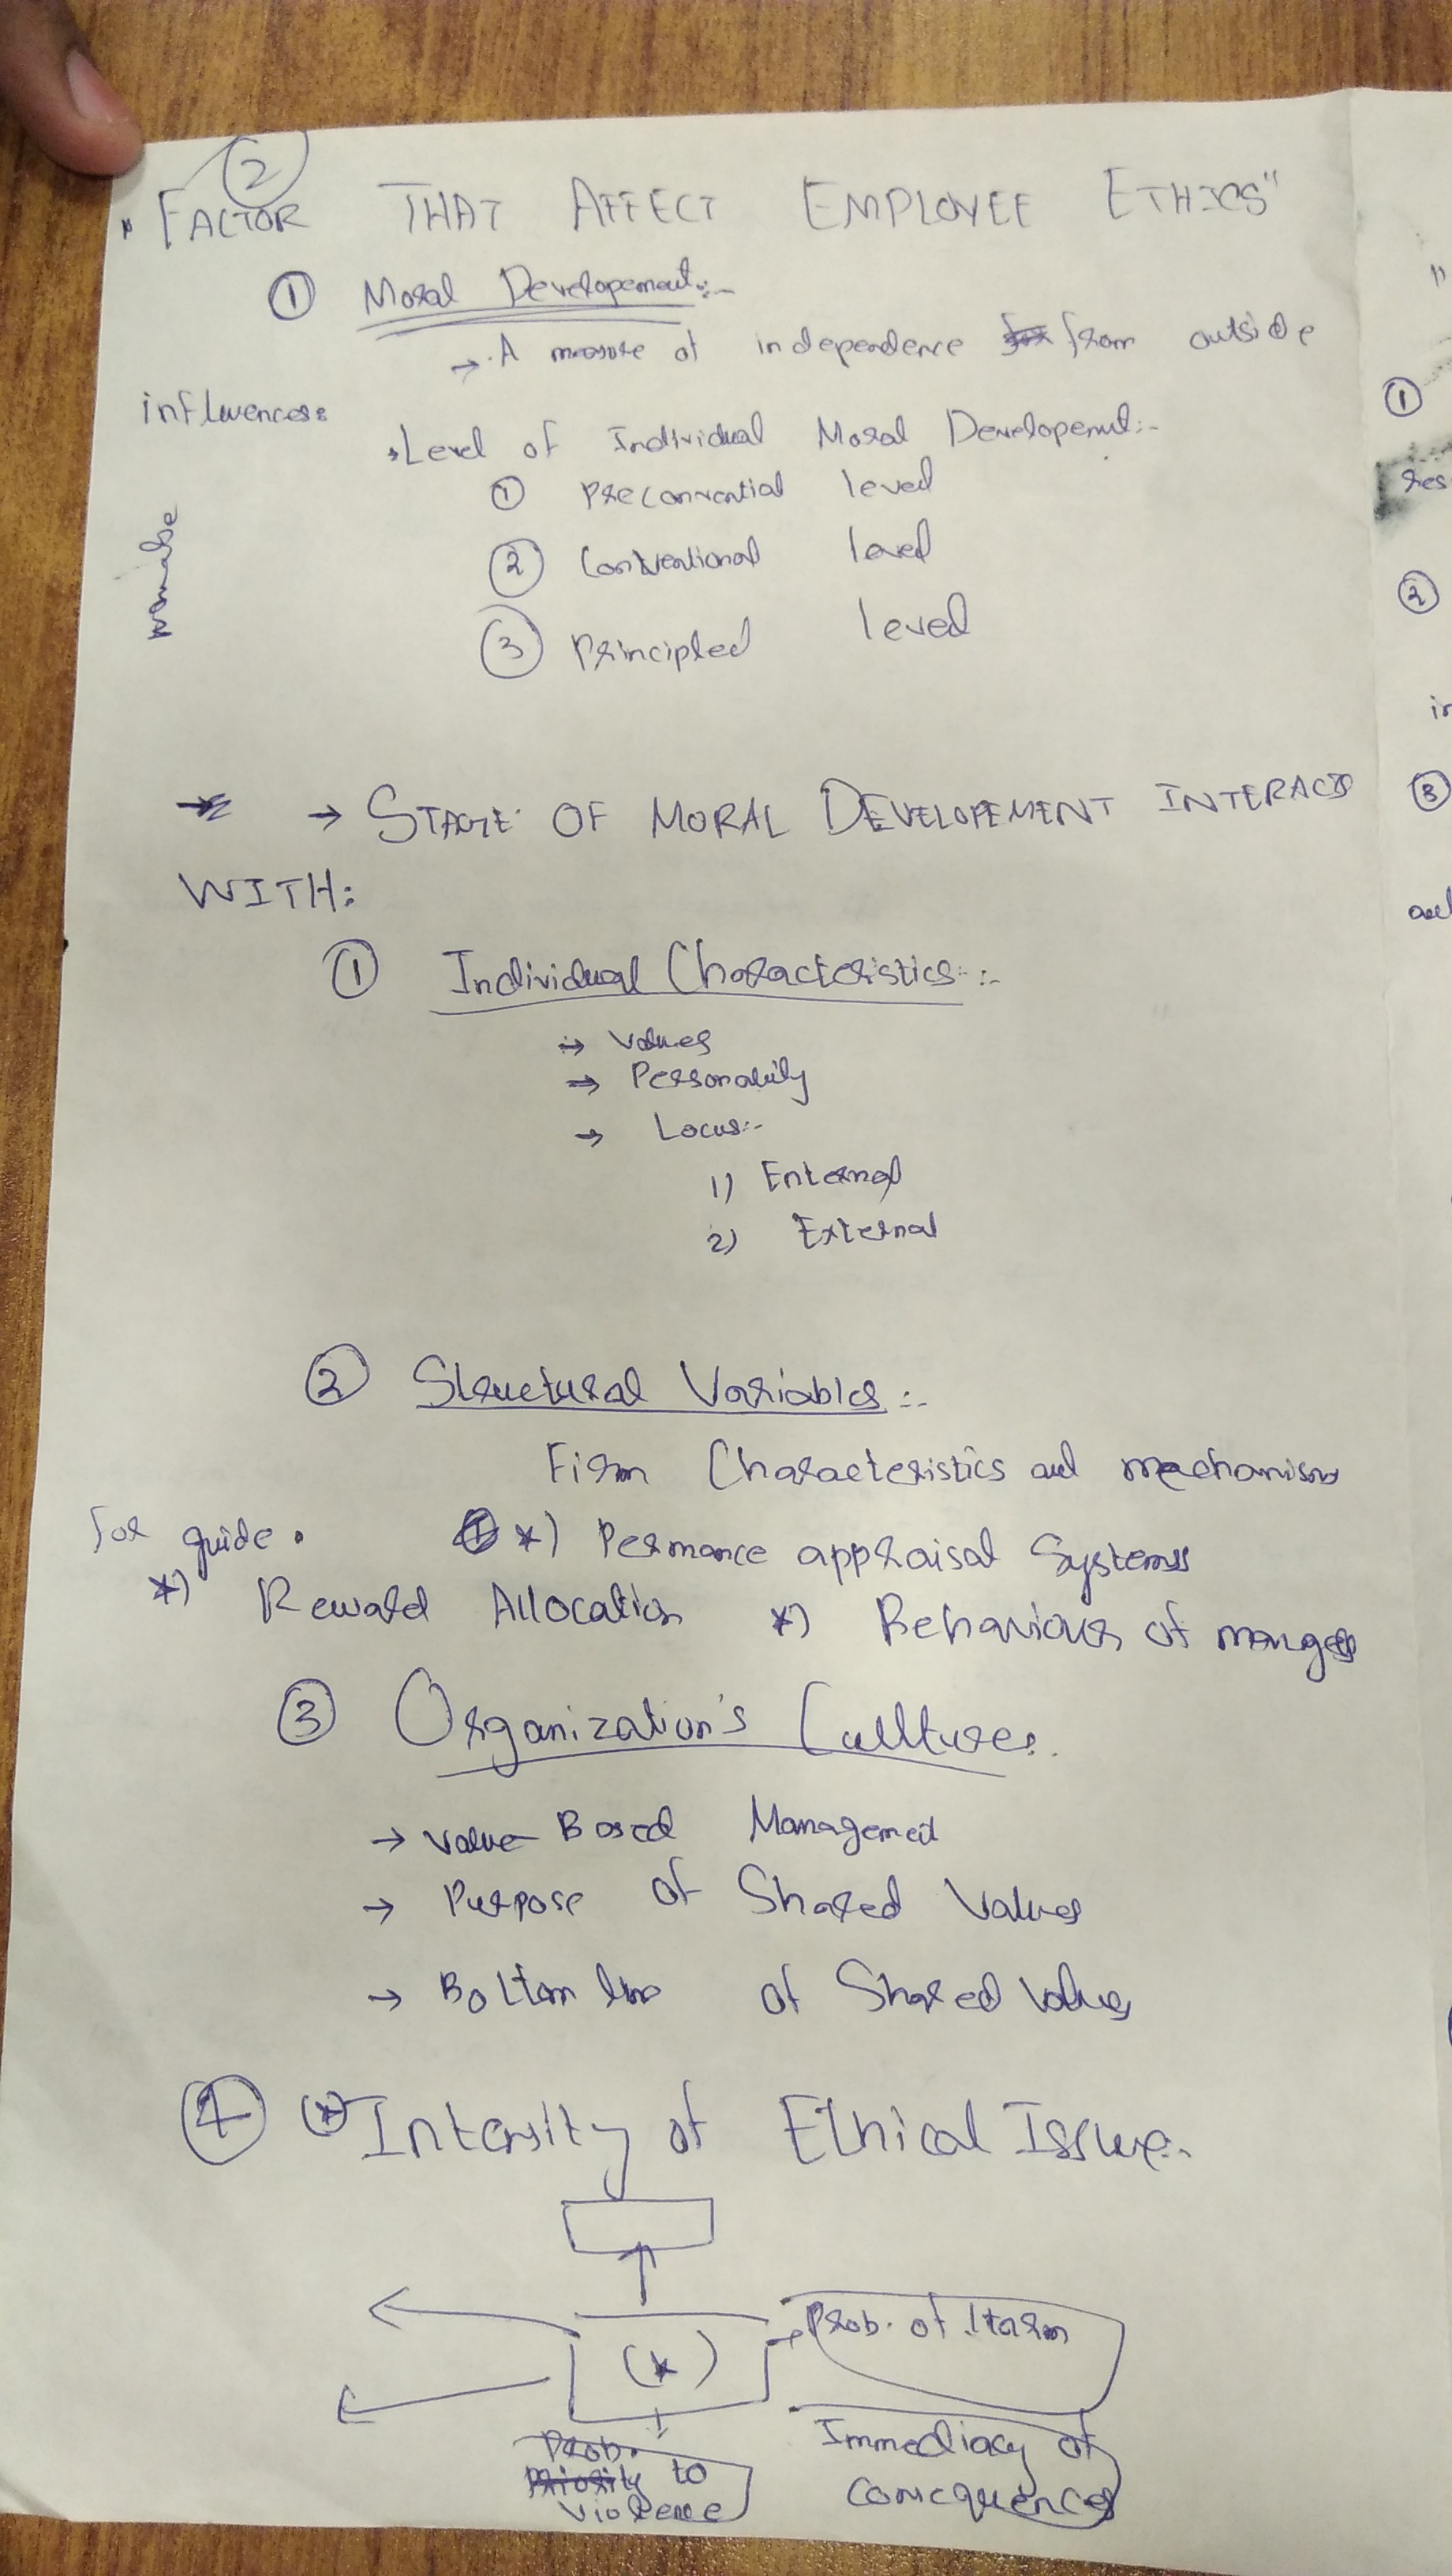 2
"FACTOR THAT AFFECT EMPLOYEE ETHICS"
① Moral Developement:-
→ A measure of independence from outside
influences:
Level of Individual Moral Developemnt:-
① Preconvential level
② Conventional level
③ Principled level
→ STAGE OF MORAL DEVELOPEMENT INTERACTS
WITH:
① Individual Characteristics:-
→ Values
→ Personality
→ Locus:-
1) Enternal
2) External
② Structural Variables:-
Firm Characteristics and mechanism
for guide.
*) Permance appraisal Systems
*) Reward Allocation *) Behaviour of
③ Organization's Cultures.
→ Value Based Management
→ Purpose of Shared Values
→ Bottom line of Shared Values
④ (*) Intensity of Ethical Issue.
(*)
Prob. of Harm
Immediacy of
consequences
Prob.
to
violence
"
①
res
②
in
③
and